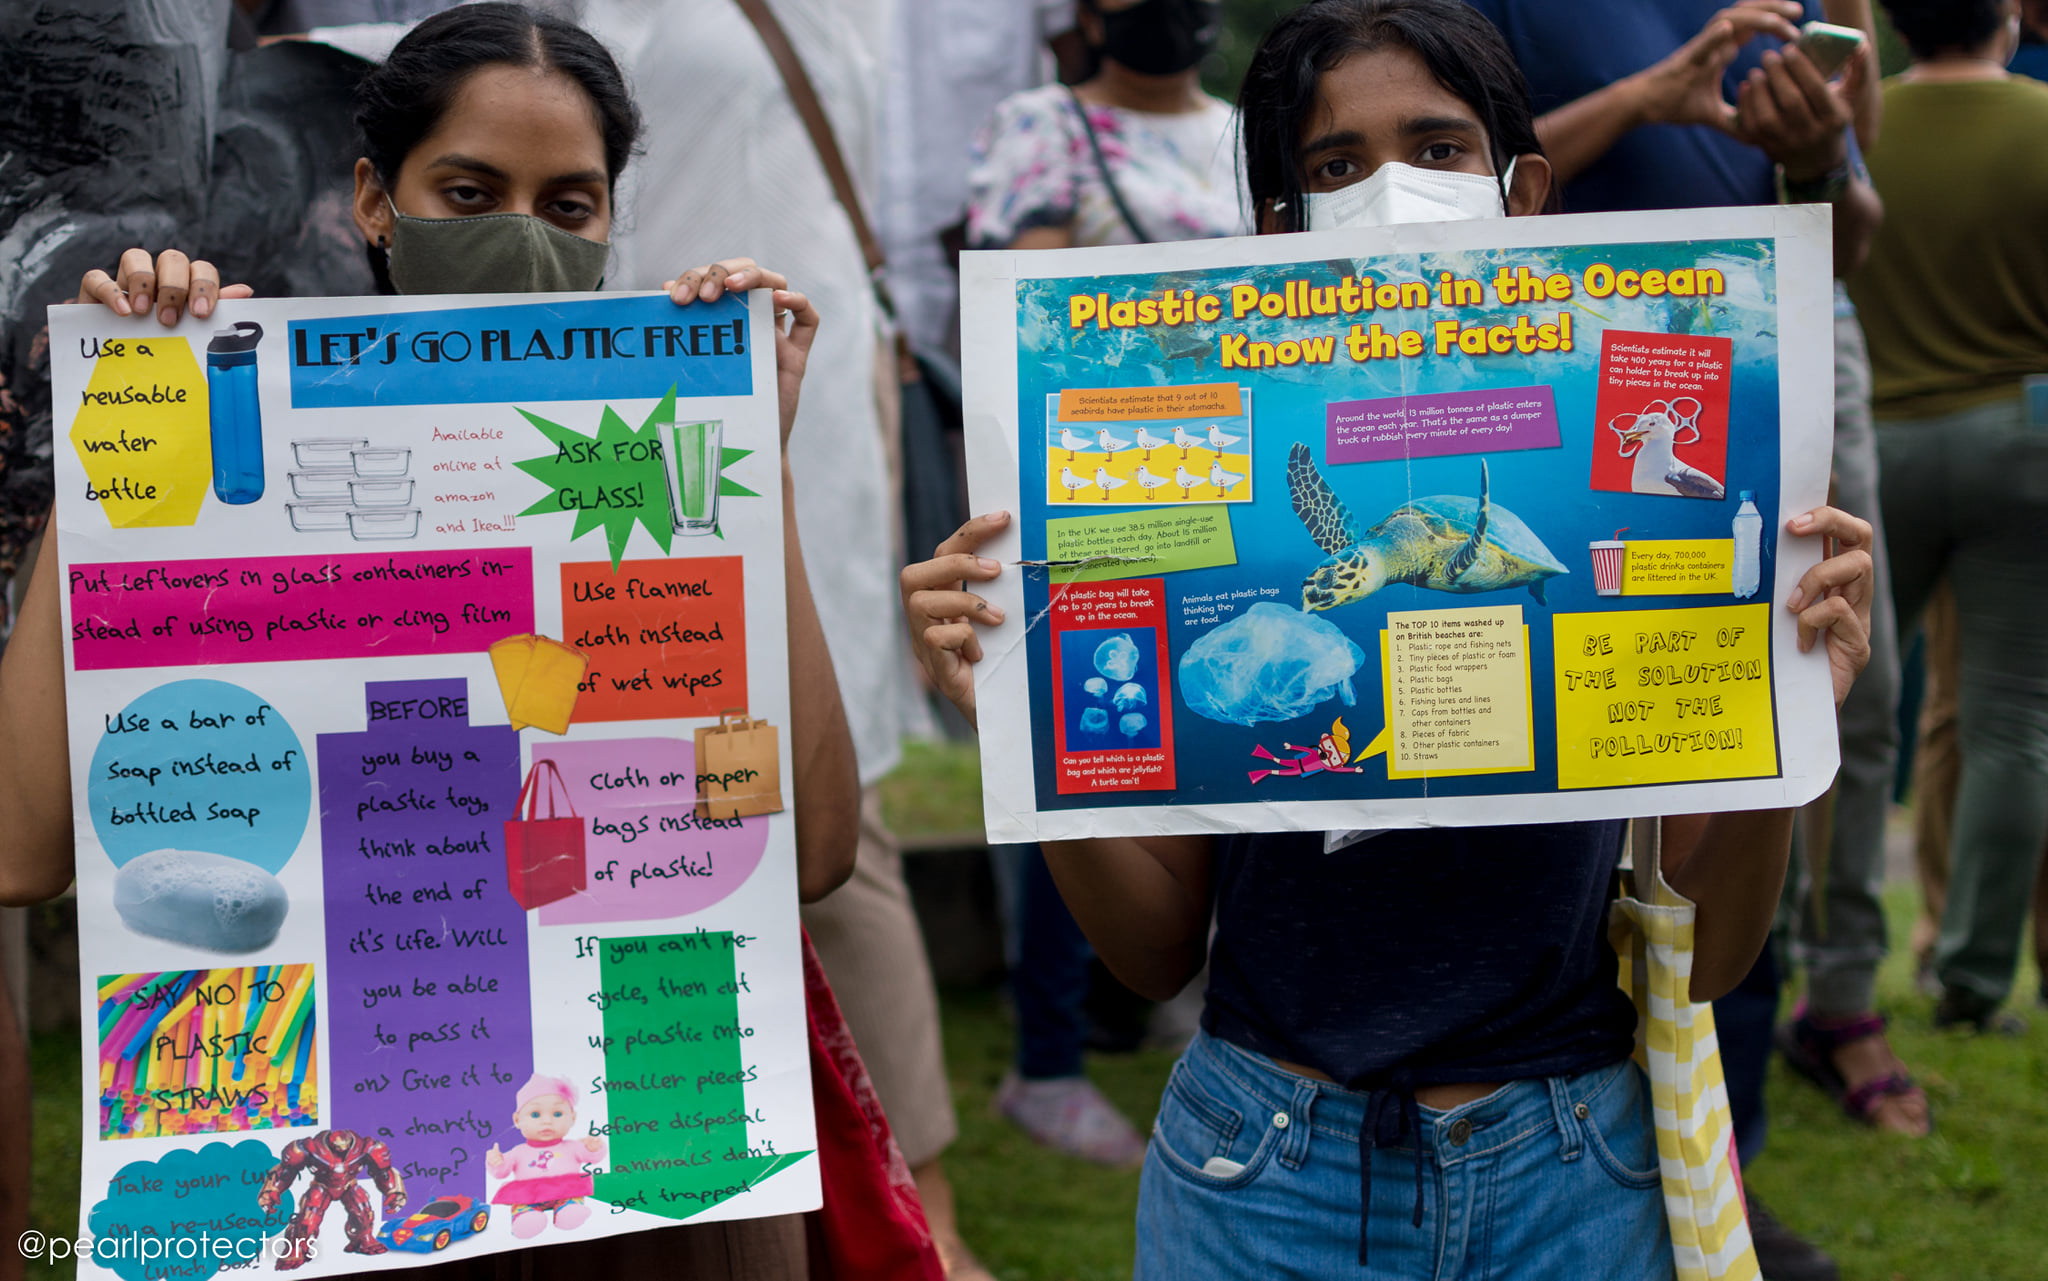 LET'S GO PLASTIC FREE!
Use a
reusable
water
bottle
Available
online at
amazon
and Ikea!!!
ASK FOR
GLASS!
Put leftovers in glass containers in-
stead of using plastic or cling film
Use flannel
cloth instead
of wet wipes
Use a bar of
Soap instead of
bottled Soap
BEFORE
you buy a
plastic toy,
think about
the end of
it's life. Will
you be able
to pass it
on> Give it to
a charity
shop?
Cloth or paper
bags instead
of plastic!
SAY NO TO
PLASTIC
STRAWS
If you can't re-
cycle, then cut
up plastic into
smaller pieces
before disposal
so animals don't
get trapped
Take your
in a re-useable
lunch box!
@pearlprotectors
Plastic Pollution in the Ocean
Know the Facts!
Scientists estimate that 9 out of 10
seabirds have plastic in their stomachs.
Around the world, 13 million tonnes of plastic enters
the ocean each year. That's the same as a dumper
truck of rubbish every minute of every day!
Scientists estimate it will
take 400 years for a plastic
can holder to break up into
tiny pieces in the ocean.
In the UK we use 38.5 million single-use
plastic bottles each day. About 15 million
of these are littered, go into landfill or
are (burned).
Every day, 700,000
plastic drinks containers
are littered in the UK.
A plastic bag will take
up to 20 years to break
up in the ocean.
Can you tell which is a plastic
bag and which are jellyfish?
A turtle can't!
Animals eat plastic bags
thinking they
are food.
The TOP 10 items washed up
on British beaches are:
1. Plastic rope and fishing nets
2. Tiny pieces of plastic or foam
3. Plastic food wrappers
4. Plastic bags
5. Plastic bottles
6. Fishing lures and lines
7. Caps from bottles and
other containers
8. Pieces of fabric
9. Other plastic containers
10. Straws
BE PART OF
THE SOLUTION
NOT THE
POLLUTION!